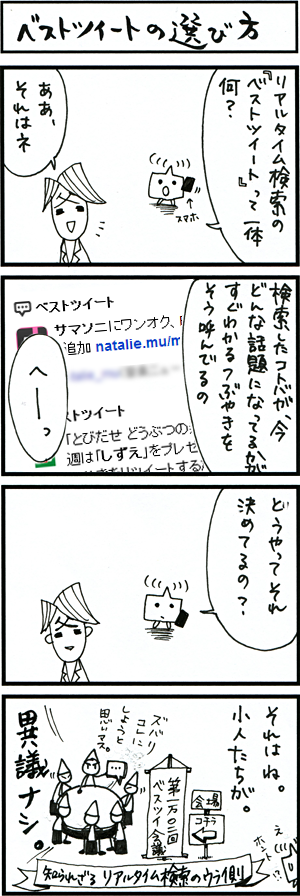 ベストツイートの選び方
『リアルタイム検索の
ベストツイート』って一体
何？
ああ、
それはネ
スマホ
検索したコトバが、今
どんな話題になってるかが
すぐわかるつぶやきを
そう呼んでるの
ベストツイート
サマソニにワンオク、
追加 natalie.mu/m
へーっ
ストツイート
「とびだせ どうぶつの
週は「しずえ」をプレゼ
をリツイートする
どうやってそれ
決めてるの？
それはね。
小人たちが。
え
ホント
会場
コチラ
第一万〇二回
ベスツイ会議
ズバリ
コレに
しようと
思いマス。
異議ナシ。
知られざる リアルタイム検索のウラ側!!